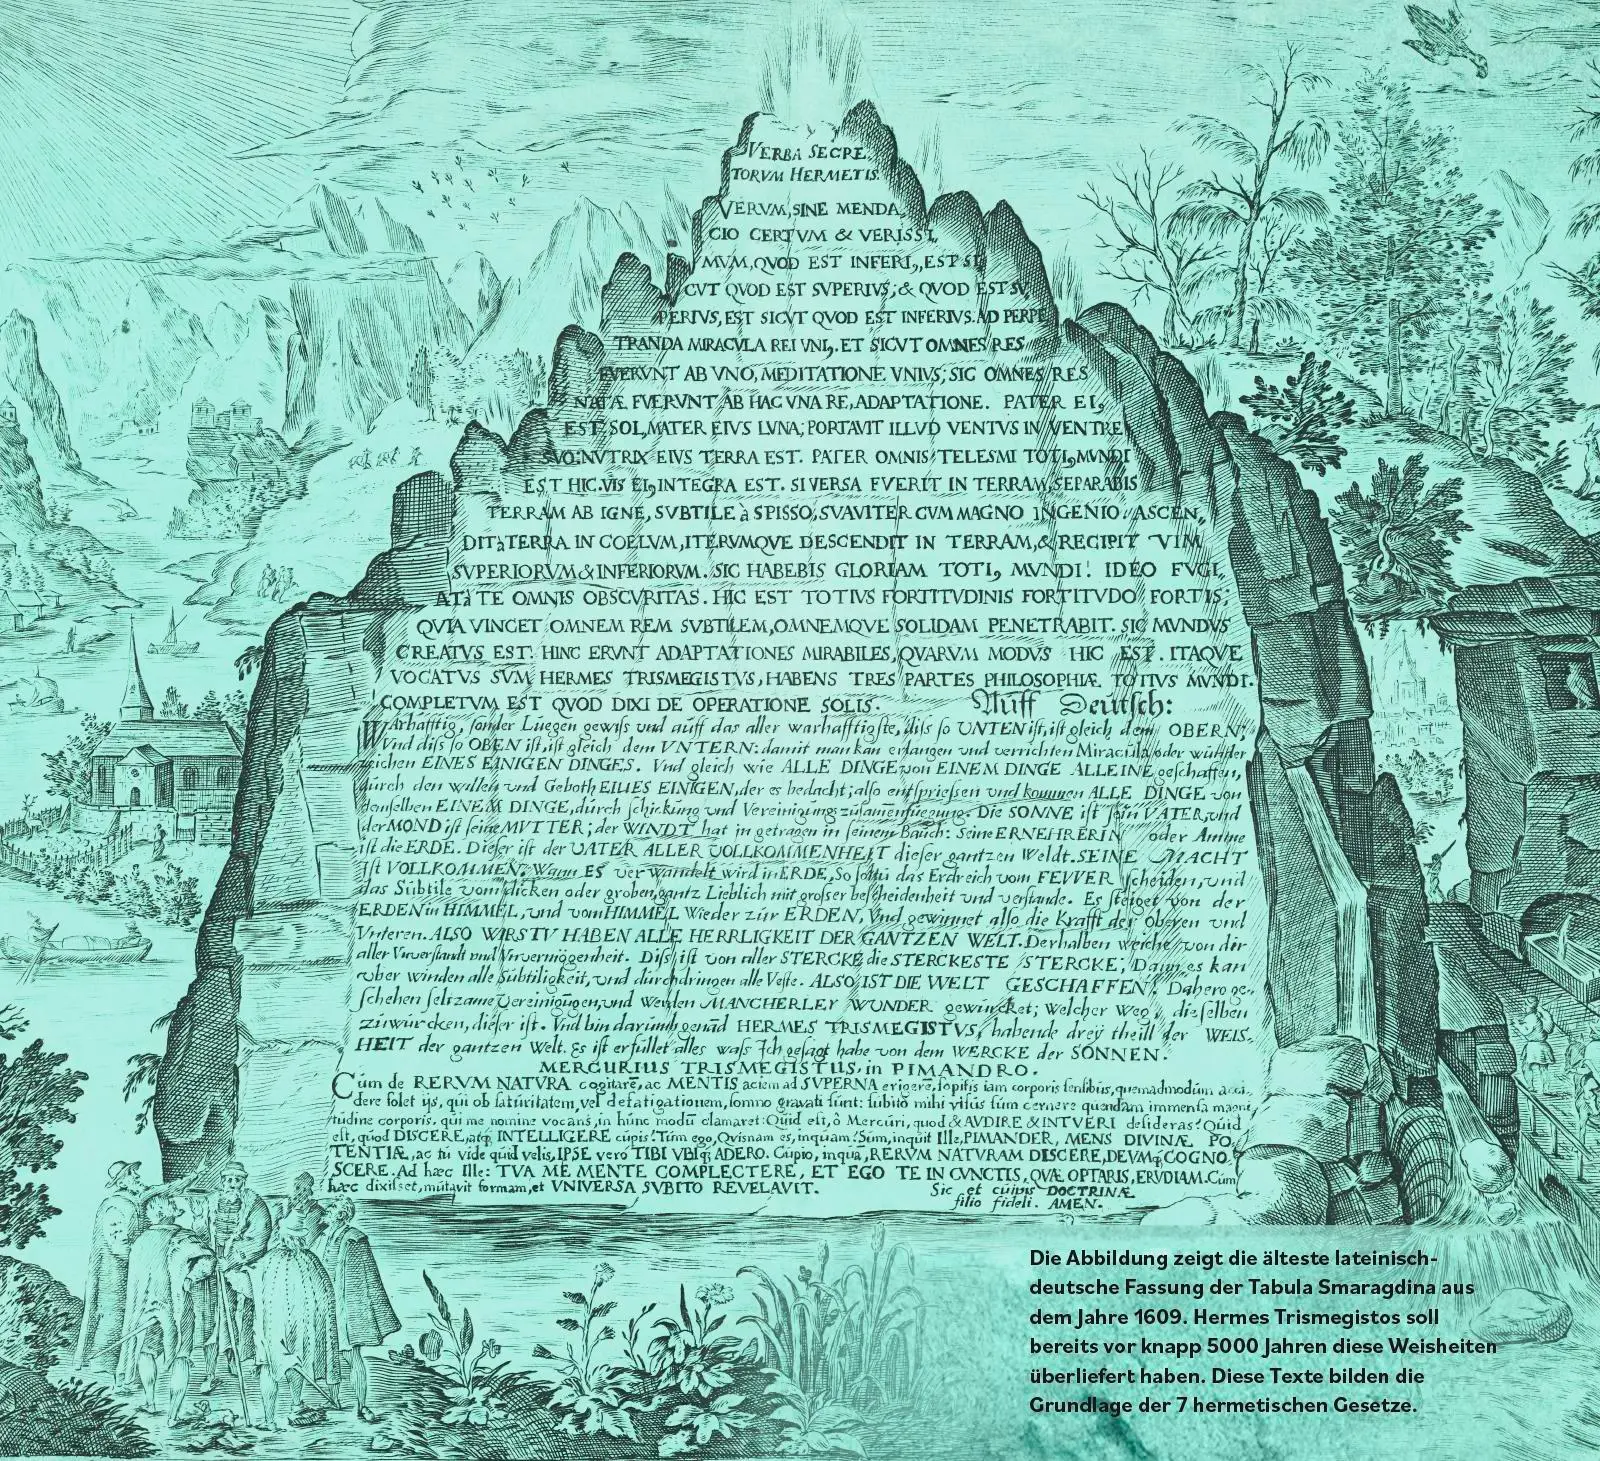 VERBA SECRE,
TORVM HERMETIS.
VERVM, SINE MENDA,
CIO CERTVM & VERISSI,
MVM, QVOD EST INFERI,, EST SI,
CVT QVOD EST SVPERIVS; & QVOD EST SV,
PERIVS, EST SICVT QVOD EST INFERIVS. AD PERPE
TRANDA MIRACVLA REI VNI,. ET SICVT OMNES RES
FVERVNT AB VNO, MEDITATIONE VNIVS; SIC OMNES RES
NATÆ FVERVNT AB HAC VNA RE, ADAPTATIONE. PATER EI,
EST SOL, MATER EIVS LVNA; PORTAVIT ILLVD VENTVS IN VENTRE
SVO: NVTRIX EIVS TERRA EST. PATER OMNIS TELESMI TOTI, MVNDI
EST HIC. VIS EI, INTEGRA EST. SI VERSA FVERIT IN TERRAM, SEPARABIS
TERRAM AB IGNE, SVBTILE à SPISSO, SVAVITER CVM MAGNO INGENIO. ASCEN,
DIT à TERRA IN COELVM, ITERVMQVE DESCENDIT IN TERRAM, & RECIPIT VIM
SVPERIORVM & INFERIORVM. SIC HABEBIS GLORIAM TOTI, MVNDI. IDEO FVGI,
AT à TE OMNIS OBSCVRITAS. HIC EST TOTIVS FORTITVDINIS FORTITVDO FORTIS;
QVIA VINCET OMNEM REM SVBTILEM, OMNEMQVE SOLIDAM PENETRABIT. SIC MVNDVS
CREATVS EST. HINC ERVNT ADAPTATIONES MIRABILES, QVARVM MODVS HIC EST. ITAQVE
VOCATVS SVM HERMES TRISMEGISTVS, HABENS TRES PARTES PHILOSOPHIÆ TOTIVS MVNDI.
COMPLETVM EST QVOD DIXI DE OPERATIONE SOLIS. Auff Deutsch:
WArhafftig, sonder Luegen gewiss und auff das aller warhafftigste, diss so UNTEN ist, ist gleich dem OBERN;
Vnd diss so OBEN ist, ist gleich dem VNTERN: damit man kan erlangen und verrichten Miracula oder wunder
zeichen EINES EINIGEN DINGES. Vnd gleich wie ALLE DINGE von EINEM DINGE ALLEINE geschaffen,
durch den willen und Geboth EINES EINIGEN, der es bedacht; also entspriessen und kommen ALLE DINGE von
demselben EINEM DINGE, durch schickung und Vereinigung zusammenfuegung. Die SONNE ist sein VATER, und
der MOND ist seine MVTTER; der WINDT hat jn getragen in seinem Bauch: Seine ERNEHRERIN oder Amme
ist die ERDE. Dieser ist der VATER ALLER VOLLKOMMENHEIT dieser gantzen Weldt. SEINE MACHT
Ist VOLLKOMMEN; Wann ES verwandelt wird in ERDE, So soltu das Erdreich vom FEVVER scheiden, und
das Subtile vom dicken oder groben, gantz Lieblich mit groser bescheidenheit und verstande. Es steiget von der
ERDEN in HIMMEL, und vom HIMMEL Wieder zur ERDEN, Vnd gewinnet also die Krafft der Oberen und
Vnteren. ALSO WIRSTV HABEN ALLE HERRLIGKEIT DER GANTZEN WELT. Derhalben weiche von dir
aller Vnverstandt und Vnvermögenheit. Diss ist von aller STERCKE die STERCKESTE STERCKE; Dann es kan
uber winden alle Subtiligkeit, und durchdringen alle Veste. ALSO IST DIE WELT GESCHAFFEN. Dahero ge,
schehen seltzame Vereinigungen, und werden MANCHERLEY WUNDER gewürcket; Welcher Weg, dieselben
zuwürcken, dieser ist. Vnd bin darumb genand HERMES TRISMEGISTVS, habende drey theill der WEIS,
HEIT der gantzen Welt. Es ist erfüllet alles wass Ich gesagt habe von dem WERCKE der SONNEN.
MERCURIUS TRISMEGISTUS, in PIMANDRO.
Cum de RERVM NATVRA cogitarē, ac MENTIS aciem ad SVPERNA erigerē, sopitis iam corporis sensibus, quemadmodùm acci,
dere solet ijs, qui ob saturitatem, vel defatigationem, somno gravati sunt: subitò mihi visus sum cernere quendam immensa magni,
tudine corporis, qui me nomine vocans, in hunc modū clamaret: Quid est, ô Mercuri, quod & AVDIRE & INTVERI desideras? Quid
est, quod DISCERE, atq, INTELLIGERE cupis? Tùm ego, Quisnam es, inquam? Sum, inquit Ille, PIMANDER, MENS DIVINÆ PO,
TENTIÆ, ac tu vide quid velis, IPSE verò TIBI VBIq; ADERO. Cupio, inquā, RERVM NATVRAM DISCERE, DEVMq; COGNO,
SCERE. Ad hæc Ille: TVA ME MENTE COMPLECTERE, ET EGO TE IN CVNCTIS, QVÆ OPTARIS, ERVDIAM. Cùm
hæc dixisset, mutavit formam, et VNIVERSA SVBITO REVELAVIT.
Sic et cuius DOCTRINÆ
filio fideli. AMEN.
Die Abbildung zeigt die älteste lateinisch-
deutsche Fassung der Tabula Smaragdina aus
dem Jahre 1609. Hermes Trismegistos soll
bereits vor knapp 5000 Jahren diese Weisheiten
überliefert haben. Diese Texte bilden die
Grundlage der 7 hermetischen Gesetze.